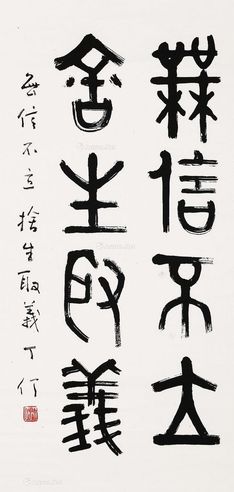 無信不立
舍生取義
無信不立捨生取義丁仃